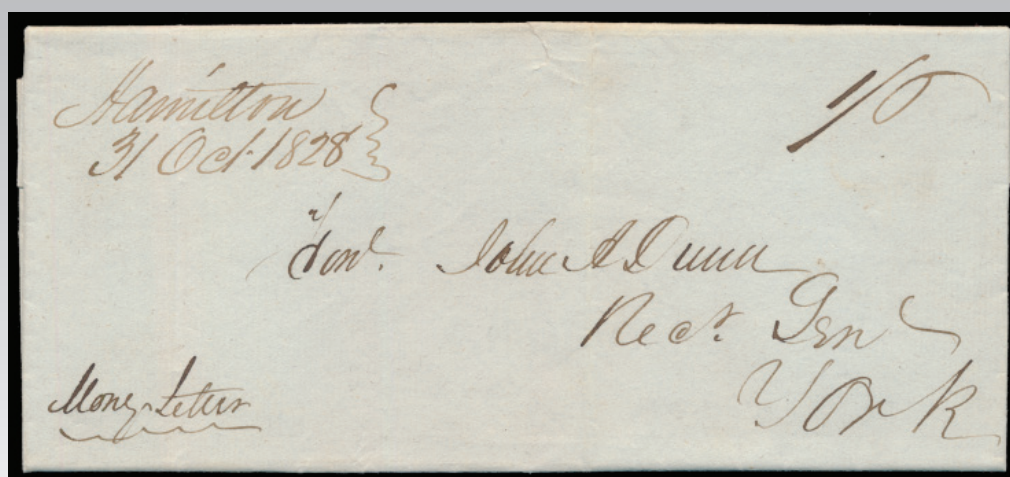 Hamilton
31 Oct. 1828
1/0
Honl. John H Dunn
Recr. Genl
York
Money Letter